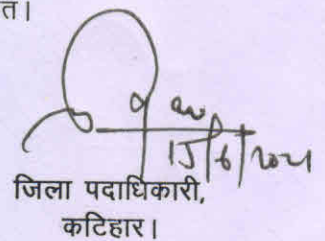 त।
15/6/2021
जिला पदाधिकारी,
कटिहार।